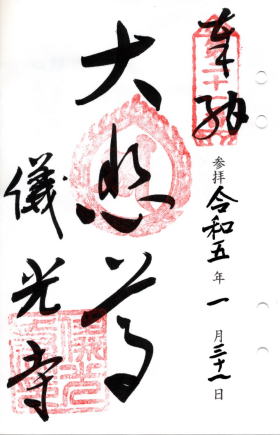 奉納
参拝 令和五年一月三十一日
大悲尊
儀光寺